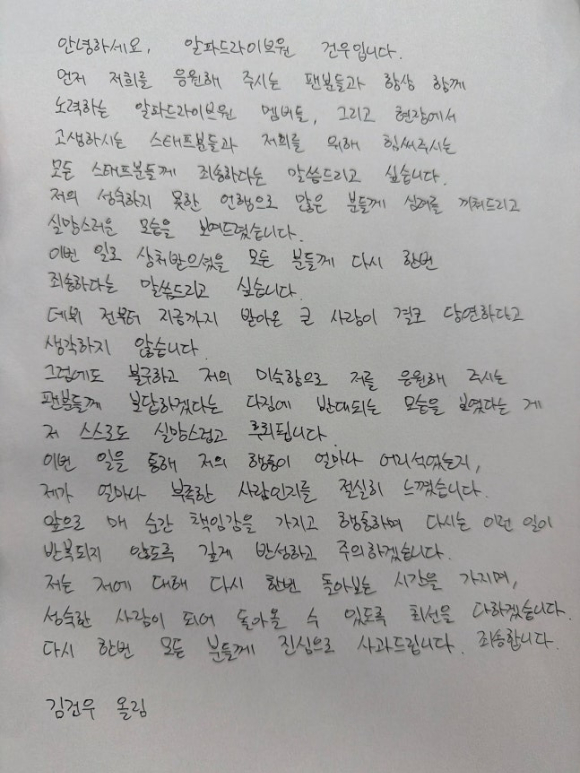 안녕하세요, 알파드라이브원 건우입니다.
먼저 저희를 응원해 주시는 팬분들과 항상 함께
노력하는 알파드라이브원 멤버들, 그리고 현장에서
고생하시는 스태프분들과 저희를 위해 힘써주시는
모든 스태프분들께 죄송하다는 말씀드리고 싶습니다.
저의 성숙하지 못한 언행으로 많은 분들께 심려를 끼쳐드리고
실망스러운 모습을 보여드렸습니다.
이번 일로 상처받으셨을 모든 분들께 다시 한번
죄송하다는 말씀드리고 싶습니다.
데뷔 전부터 지금까지 받아온 큰 사랑이 결코 당연하다고
생각하지 않습니다.
그럼에도 불구하고 저의 미숙함으로 저를 응원해 주시는
팬분들께 보답하겠다는 다짐에 반대되는 모습을 보였다는 게
저 스스로도 실망스럽고 후회됩니다.
이번 일을 통해 저의 행동이 얼마나 어리석었는지,
제가 얼마나 부족한 사람인지를 절실히 느꼈습니다.
앞으로 매 순간 책임감을 가지고 행동하며 다시는 이런 일이
반복되지 않도록 깊게 반성하고 주의하겠습니다.
저는 저에 대해 다시 한번 돌아보는 시간을 가지며,
성숙한 사람이 되어 돌아올 수 있도록 최선을 다하겠습니다.
다시 한번 모든 분들께 진심으로 사과드립니다. 죄송합니다.
김건우 올림